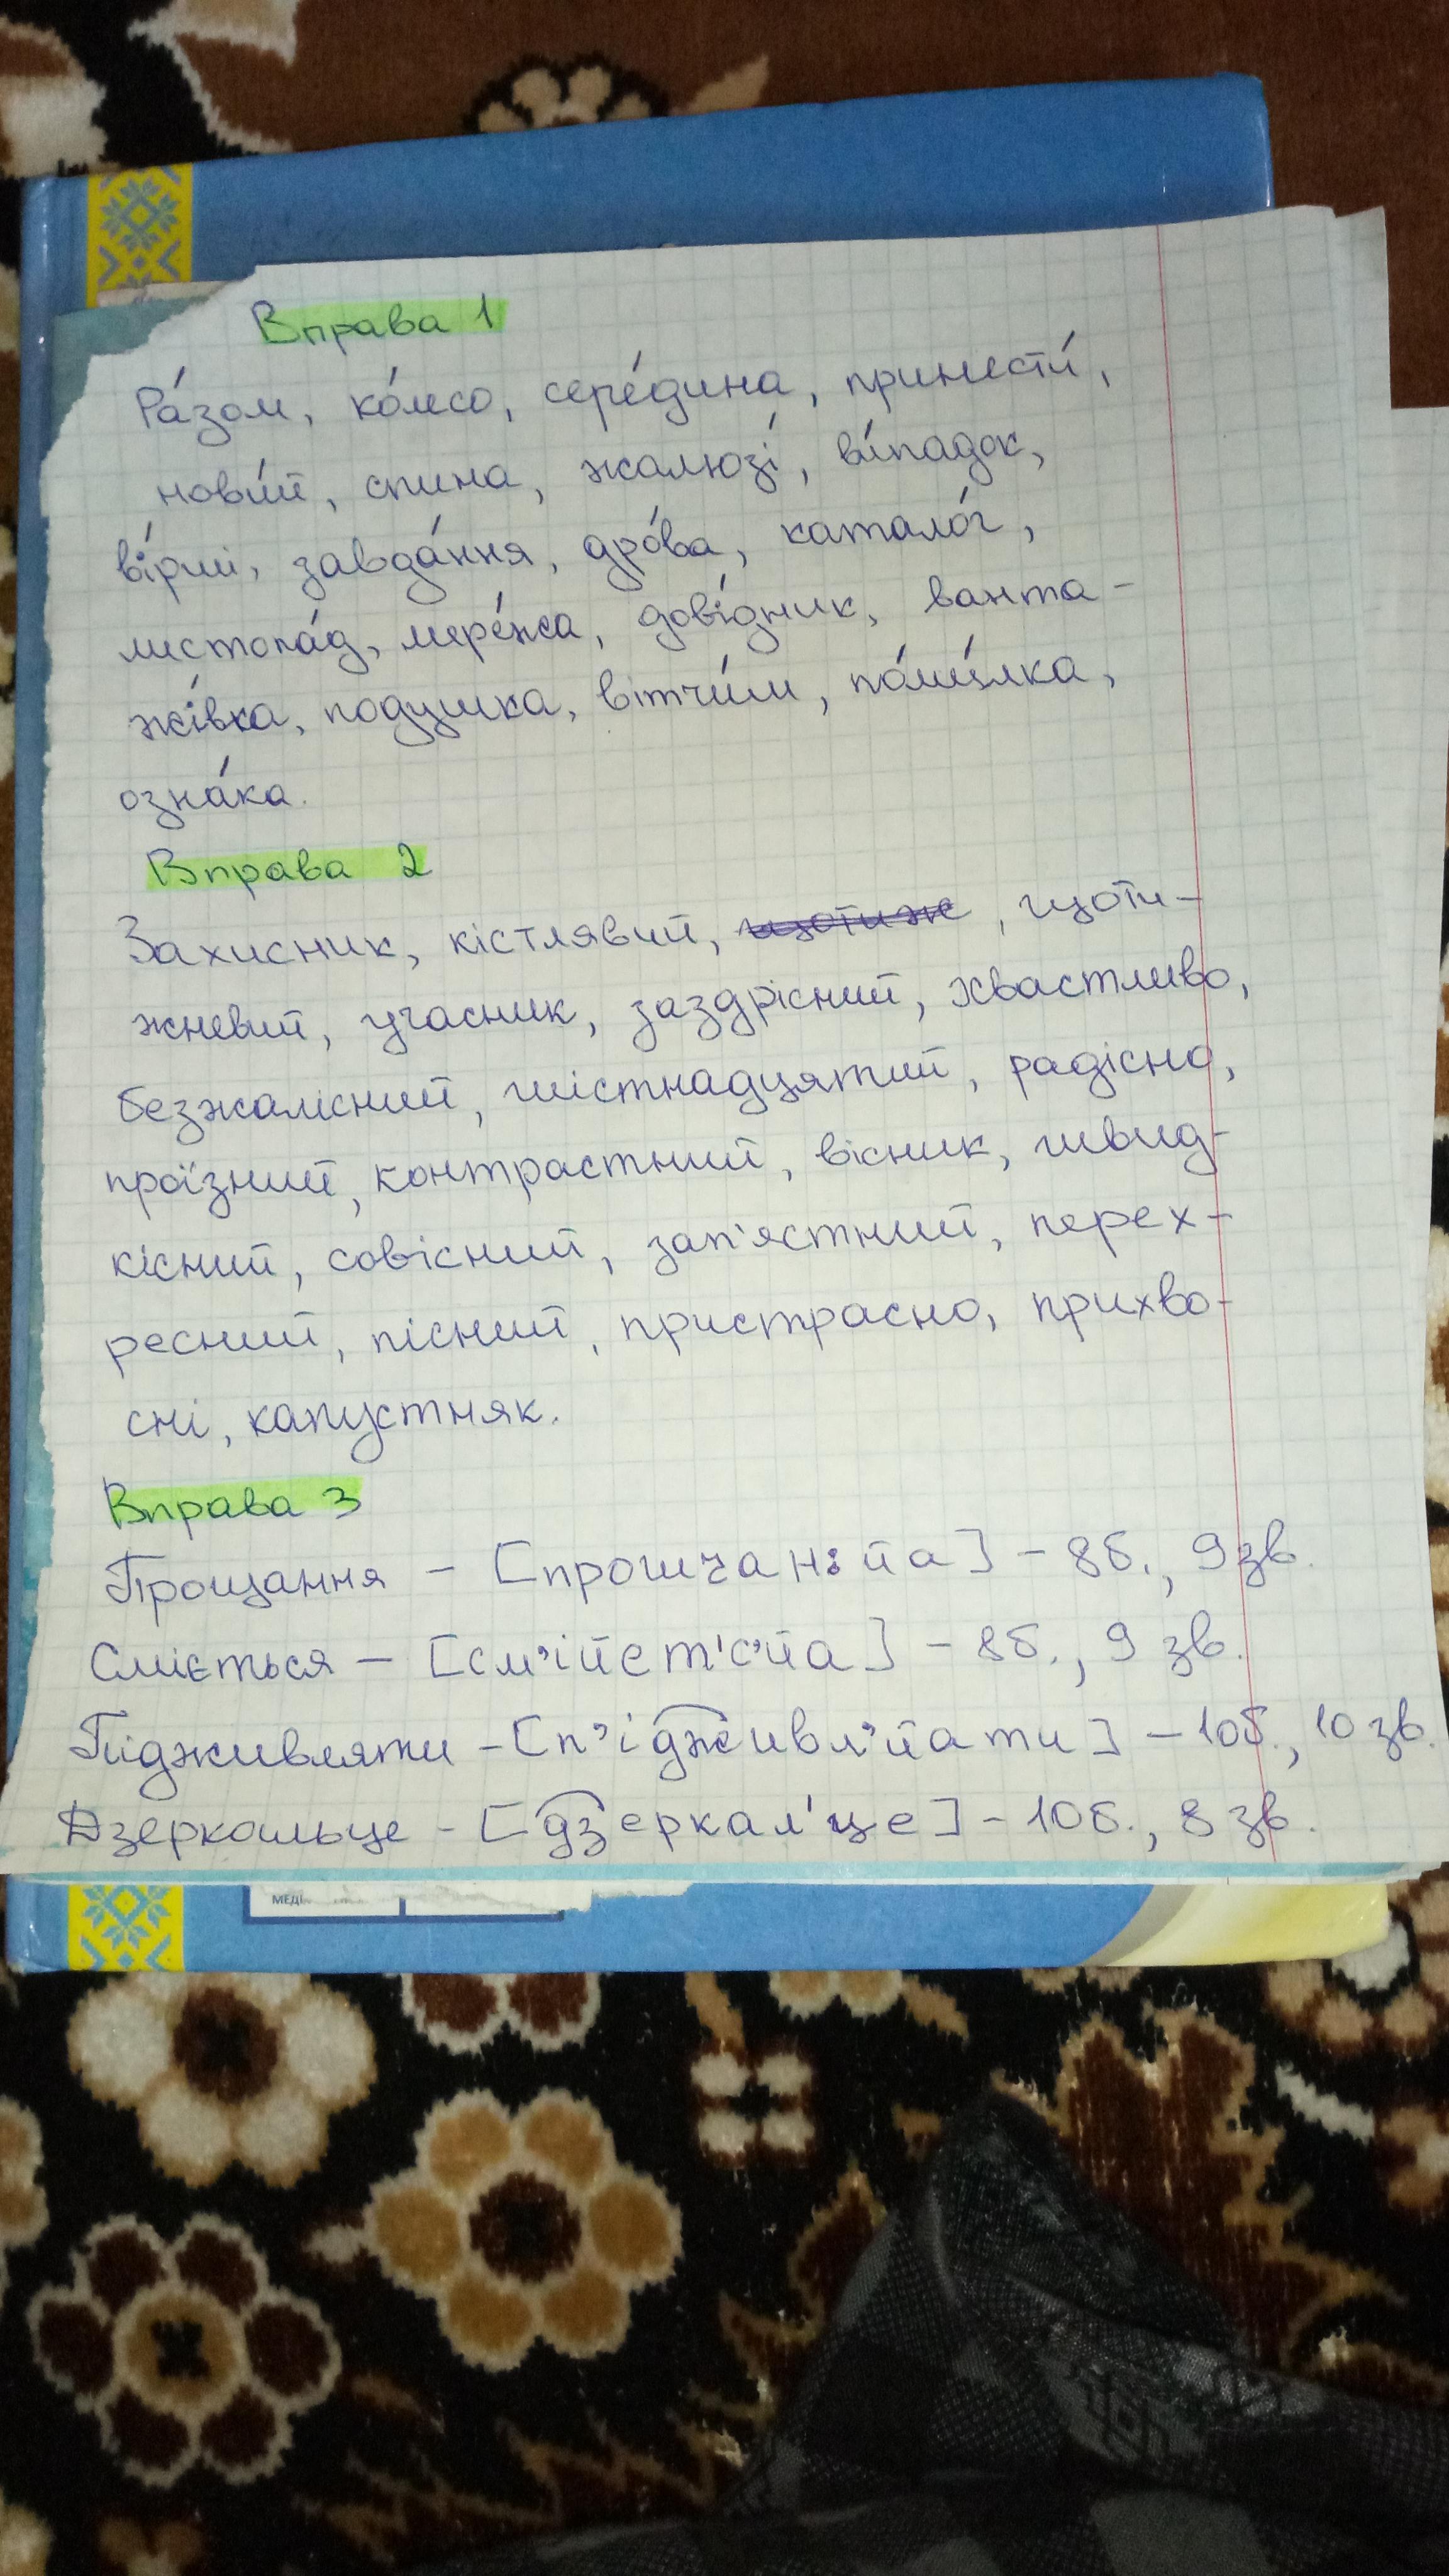 Вправа 1
Ра́зом, ко́лесо, сере́дина, принести́,
нови́й, спина, жалюзі́, ви́падок,
ві́рші, завда́ння, дро́ва, катало́г,
листопа́д, мере́жа, дові́дник, ванта-
жі́вка, подушка, вітчи́м, по́ми́лка,
озна́ка.
Вправа 2
Захисник, кістлявий, щотиж, щоти-
жневий, учасник, заздрісний, хвастливо,
безжалісний, шістнадцятий, радісно,
проїзний, контрастний, вісник, швид-
кісний, совісний, зап'ястний, перех-
ресний, пісний, пристрасно, прихво-
сні, капустняк.
Вправа 3
Прощання - [прошчан:йа] - 8б., 9зв.
Сміється - [см’ійет'с'йа] - 8б., 9 зв.
Підживляти - [п’ідживл’йати] - 10б., 10 зв.
Дзеркальце - [дзеркал'це] - 10б., 8 зв.
МЕДІ